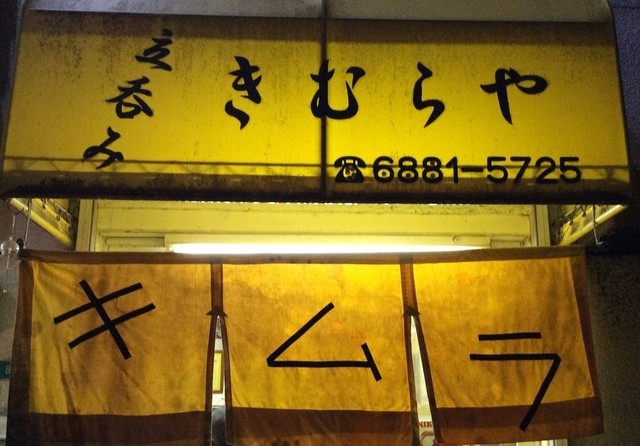 立呑み
きむらや
☎6881-5725
キムラ